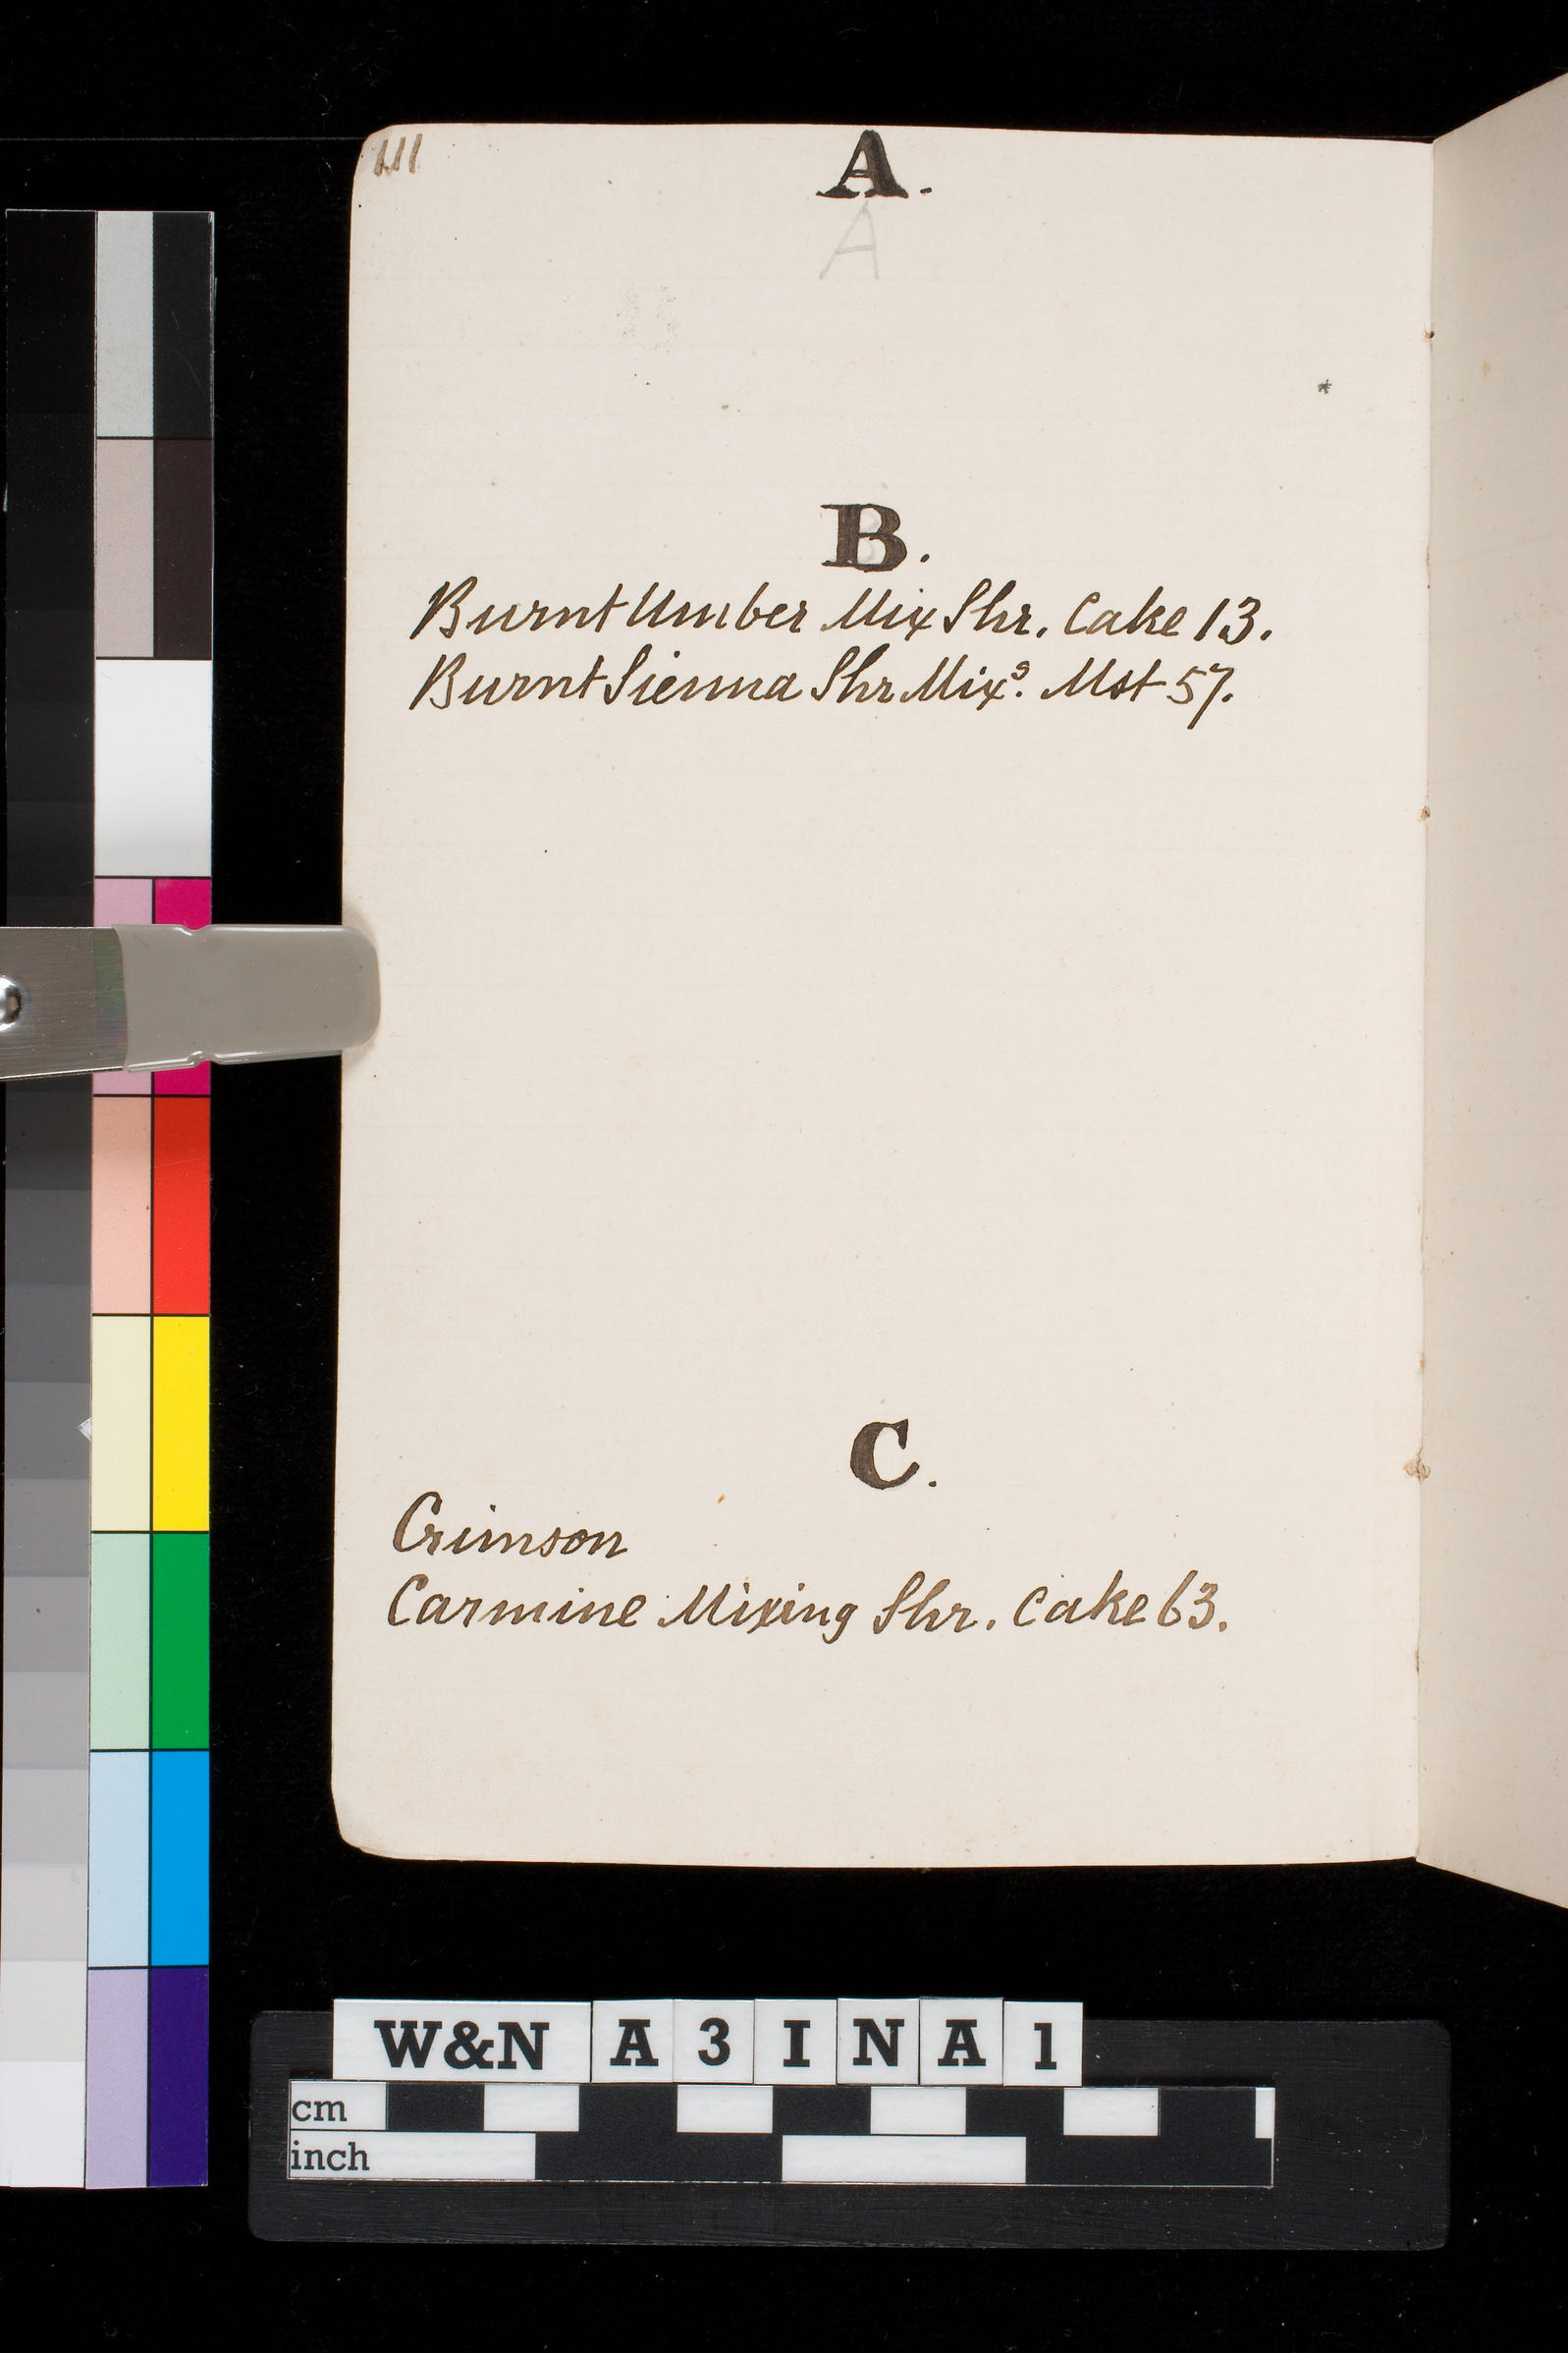 A.
A
B.
Burnt Umber Mix Shr. Cake 13.
Burnt Sienna Shr Mixs. Mst 57.
C.
Crimson
Carmine Mixing Shr. Cake 63.
W&N A 3 I N A 1
cm
inch